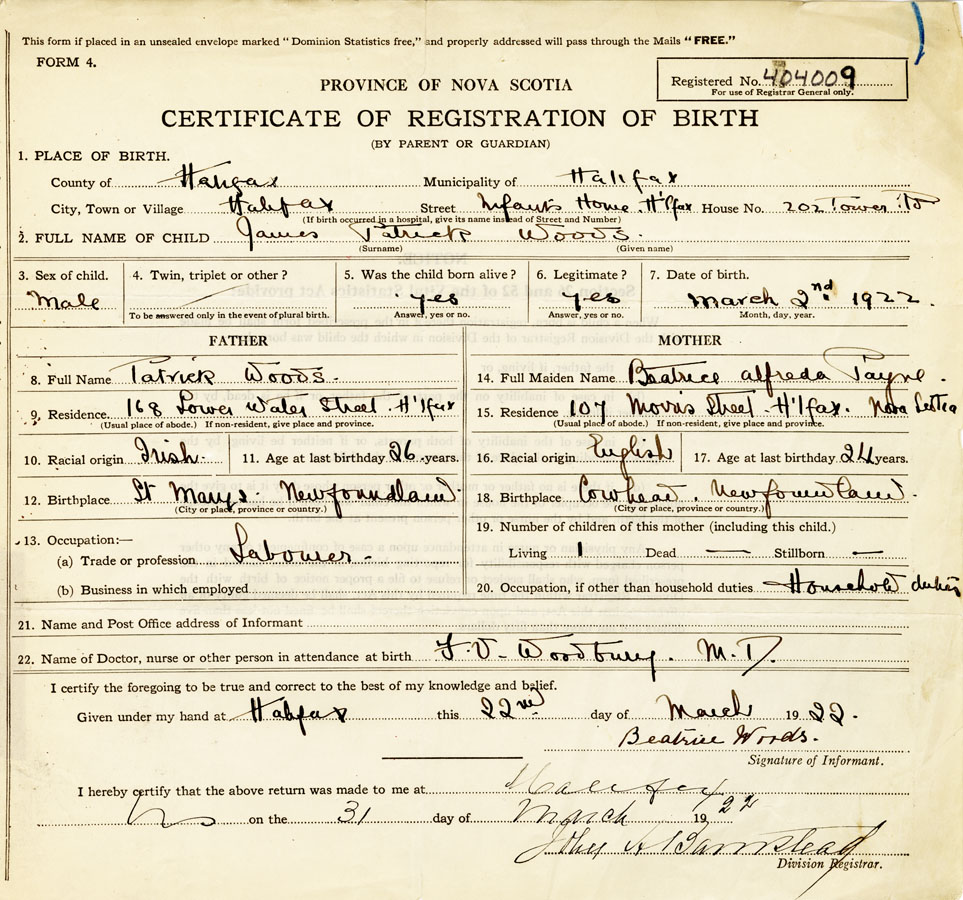 This form if placed in an unsealed envelope marked "Dominion Statistics free," and properly addressed will pass through the Mails "FREE."
FORM 4.
Registered No. 404009
For use of Registrar General only.
PROVINCE OF NOVA SCOTIA
CERTIFICATE OF REGISTRATION OF BIRTH
(BY PARENT OR GUARDIAN)
1. PLACE OF BIRTH.
County of Halifax Municipality of Halifax
City, Town or Village Halifax Street Infants Home. H'lfax House No. 202 Tower Rd
(If birth occurred in a hospital, give its name instead of Street and Number)
2. FULL NAME OF CHILD James Patrick Woods.
(Surname) (Given name)
3. Sex of child. 4. Twin, triplet or other? 5. Was the child born alive? 6. Legitimate? 7. Date of birth.
Male yes yes March 2nd 1922.
To be answered only in the event of plural birth. Answer, yes or no. Answer, yes or no. Month, day, year.
FATHER MOTHER
8. Full Name Patrick Woods. 14. Full Maiden Name Beatrice alfreda Payne.
9. Residence 168 Lower Water Street. H'lfax 15. Residence 107 Morris Street. H'lfax. Nova Scotia
(Usual place of abode.) If non-resident, give place and province. (Usual place of abode.) If non-resident, give place and province.
10. Racial origin Irish. 11. Age at last birthday 26 years. 16. Racial origin English 17. Age at last birthday 24 years.
12. Birthplace St Marys. Newfoundland. 18. Birthplace Cowhead. Newfoundland.
(City or place, province or country.) (City or place, province or country.)
13. Occupation:— 19. Number of children of this mother (including this child.)
(a) Trade or profession Labourer. Living 1 Dead — Stillborn —
(b) Business in which employed 20. Occupation, if other than household duties Household duties
21. Name and Post Office address of Informant
22. Name of Doctor, nurse or other person in attendance at birth F. V. Woodbury. M.D.
I certify the foregoing to be true and correct to the best of my knowledge and belief.
Given under my hand at Halifax this 22nd day of March 19 22.
Beatrice Woods.
Signature of Informant.
I hereby certify that the above return was made to me at Halifax
on the 31 day of March 19 22
John A Barnstead
Division Registrar.